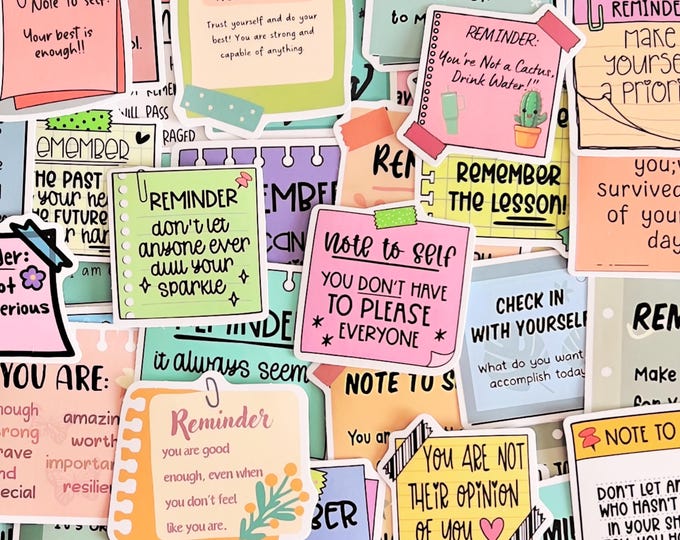 Note To Self:
Your best is
enough!!
Trust yourself and do your
best! You are strong and
capable of anything.
to M
REMINDER:
You're Not a Cactus,
Drink Water!"
REMINDER
MAKE
YOURSE
A PRIORI
WILL PASS
RAGED
EMEMBER
HE PAST
your he
HE FUTURE
ur han
REMINDER
don't let
anyone ever
dull your
sparkle
EMBER
CAN
RE
REMEMBER
THE LESSON!
you;v
survived
of your
day
der:
ot
erious
i am
NOTE TO SELF
YOU DON'T HAVE
TO PLEASE
EVERYONE
CHECK IN
WITH YOURSELF
What do you want
accomplish today
REM
Make
for y
REMINDER
it always seem
YOU ARE:
nough
trong
rave
nd
ecial
amazin
worth
importan
resilie
NOTE TO S
You an
Reminder
you are good
enough, even when
you don't feel
like you are.
BER
YOU ARE NOT
THEIR OPINION
OF YOU
NOTE TO
DON'T LET AN
WHO HASN'T
IN YOUR SH